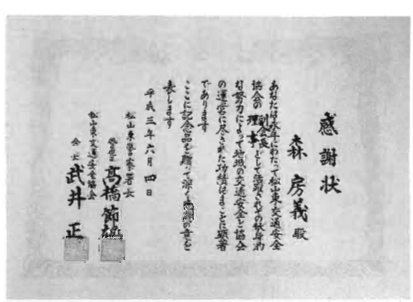 感謝状
森房義殿
あなたは永年にわたって松山東交通安全
協会の副会長理事として活躍されその献身的
な努力によって地域の交通安全と協会
の運営に尽された功績はまことに顕著
であります
ここに記念品を贈って深く感謝の意を
表します
平成三年六月四日
松山東警察署長
警視正 高橋節雄
松山東交通安全協会
会長 武井正